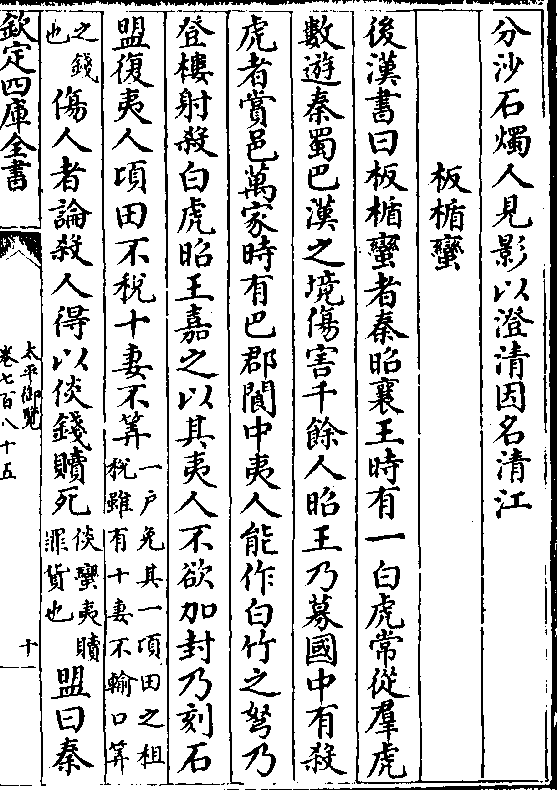 分沙石燭人見影以澄清因名清江
板楯蠻
後漢書曰板楯蠻者秦昭襄王時有一白虎常從羣虎
數遊秦蜀巴漢之境傷害千餘人昭王乃募國中有殺
虎者賞邑萬家時有巴郡閬中夷人能作白竹之弩乃
登樓射殺白虎昭王嘉之以其夷人不欲加封乃刻石
盟復夷人頃田不税十妻不筭一户免其一頃田之租税雖有十妻不輸口筭
之錢也傷人者論殺人得以倓錢贖死倓蠻夷贖罪貨也盟曰秦
欽定四庫全書
太平御覽
卷七百八十五
十